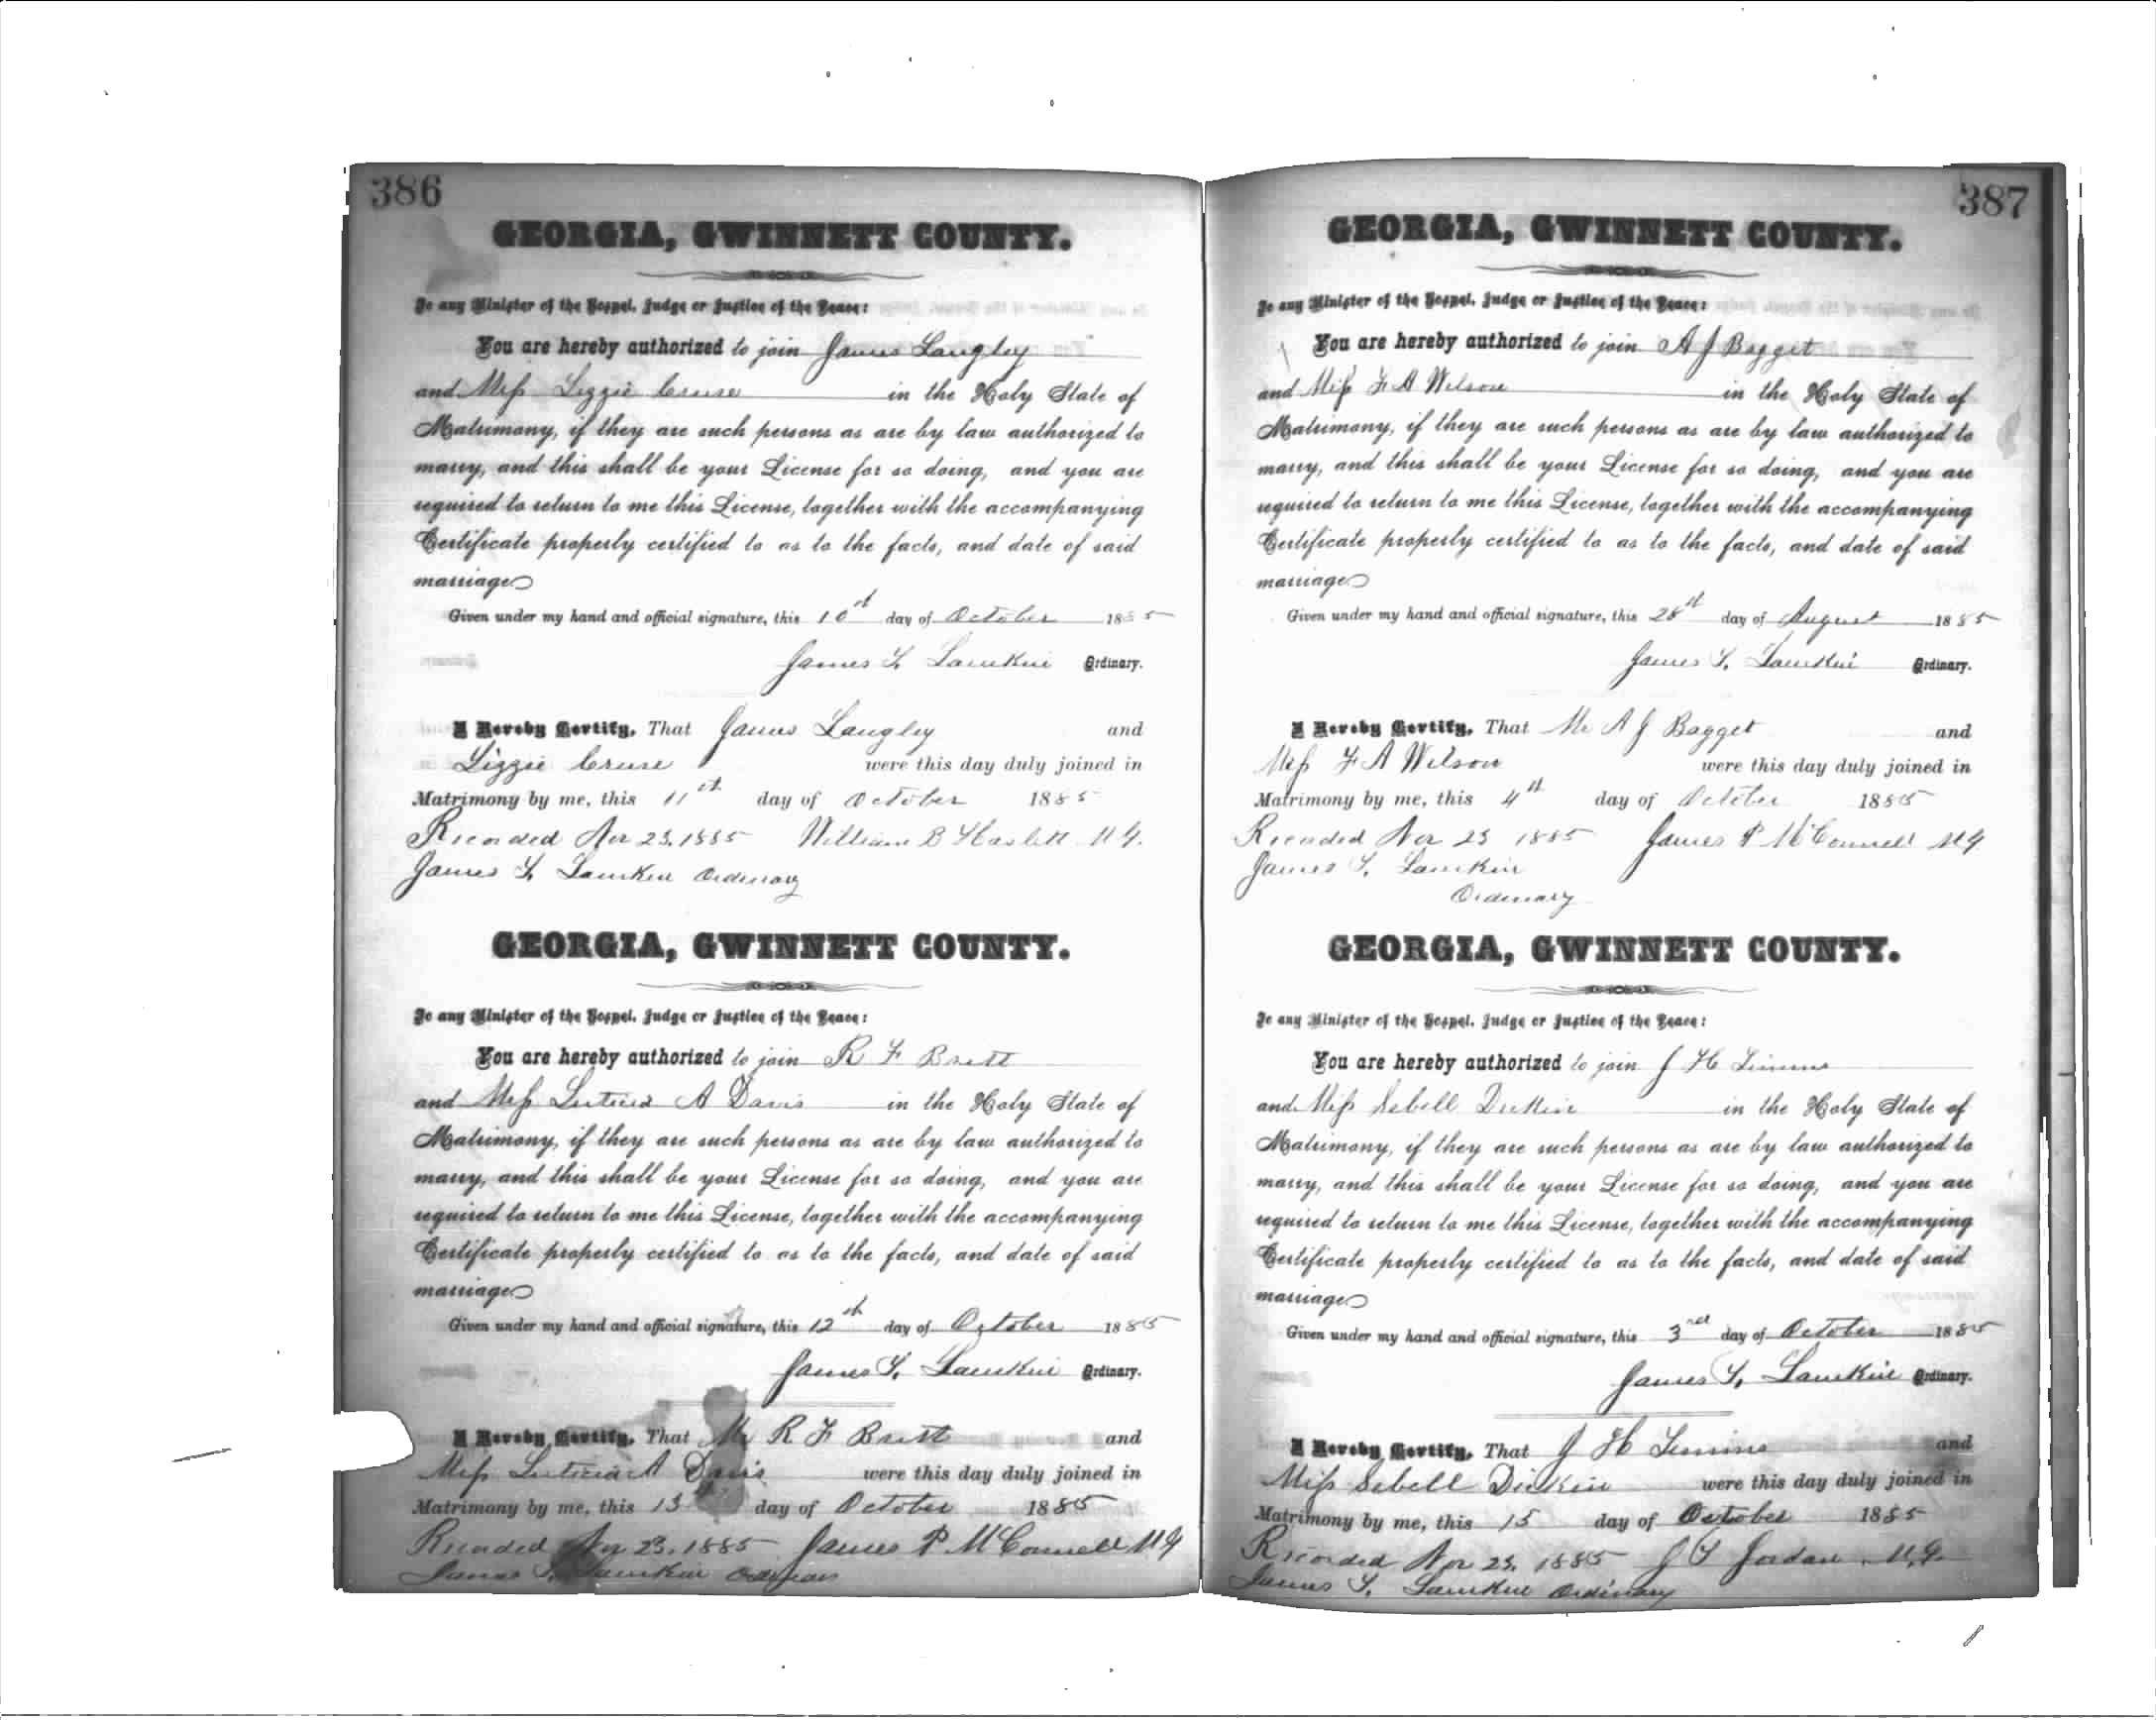 386
GEORGIA, GWINNETT COUNTY.
To any Minister of the Gospel, Judge or Justice of the Peace:
You are hereby authorized to join James Langley
and Miss Lizzie Cruse in the Holy State of
Matrimony, if they are such persons as are by law authorized to
marry, and this shall be your License for so doing, and you are
required to return to me this License, together with the accompanying
Certificate properly certified to as to the facts, and date of said
marriage
Given under my hand and official signature, this 10th day of October 1885
James T. Lamkin Ordinary.
I Hereby Certify, That James Langley and
Lizzie Cruse were this day duly joined in
Matrimony by me, this 11th day of October 1885
Recorded Nov 23, 1885 William B Haslett M.G.
James T. Lamkin Ordinary
GEORGIA, GWINNETT COUNTY.
To any Minister of the Gospel, Judge or Justice of the Peace:
You are hereby authorized to join R F Brett
and Miss A Davis in the Holy State of
Matrimony, if they are such persons as are by law authorized to
marry, and this shall be your License for so doing, and you are
required to return to me this License, together with the accompanying
Certificate properly certified to as to the facts, and date of said
marriage
Given under my hand and official signature, this 12th day of October 1885
James T. Lamkin Ordinary.
I Hereby Certify, That Mr R F Brett and
Miss A Davis were this day duly joined in
Matrimony by me, this 13 day of October 1885
Recorded Nov 23, 1885 James P McConnell M G
James T. Lamkin
387
GEORGIA, GWINNETT COUNTY.
To any Minister of the Gospel, Judge or Justice of the Peace:
You are hereby authorized to join A J Bagget
and Miss F A Wilson in the Holy State of
Matrimony, if they are such persons as are by law authorized to
marry, and this shall be your License for so doing, and you are
required to return to me this License, together with the accompanying
Certificate properly certified to as to the facts, and date of said
marriage
Given under my hand and official signature, this 28th day of August 1885
James T. Lamkin Ordinary.
I Hereby Certify, That Mr A J Bagget and
Miss F A Wilson were this day duly joined in
Matrimony by me, this 4th day of October 1885
Recorded Nov 23 1885 James P McConnell M G
James T. Lamkin
Ordinary
GEORGIA, GWINNETT COUNTY.
To any Minister of the Gospel, Judge or Justice of the Peace:
You are hereby authorized to join J H
and Miss Sebell in the Holy State of
Matrimony, if they are such persons as are by law authorized to
marry, and this shall be your License for so doing, and you are
required to return to me this License, together with the accompanying
Certificate properly certified to as to the facts, and date of said
marriage
Given under my hand and official signature, this 3rd day of October 1885
James T. Lamkin Ordinary.
I Hereby Certify, That J H and
Miss Sebell were this day duly joined in
Matrimony by me, this 15 day of October 1885
Recorded Nov 23, 1885 J T Jordan M.G.
James T. Lamkin Ordinary